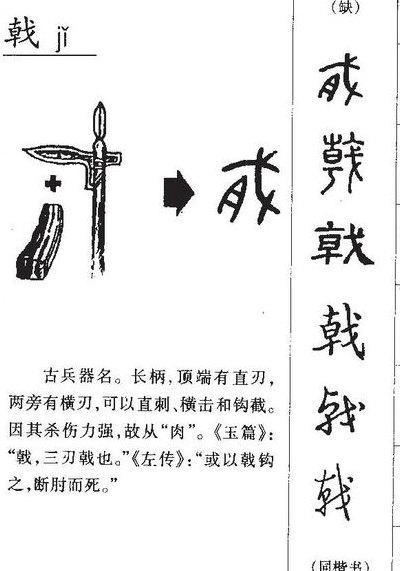 戟 jǐ
古兵器名。长柄,顶端有直刃,
两旁有横刃,可以直刺、横击和钩截。
因其杀伤力强,故从“肉”。《玉篇》:
“戟,三刃戟也。”《左传》:“或以戟钩
之,断肘而死。”
(缺)
戟
戟
戟
(同楷书)